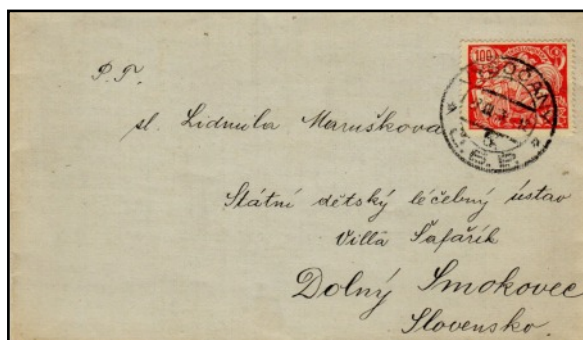 100
P.T.
sl. Lidmila Maruškova
Státní dětský léčebný ústav
Villa Šafařík
Dolný Smokovec
Slovensko.